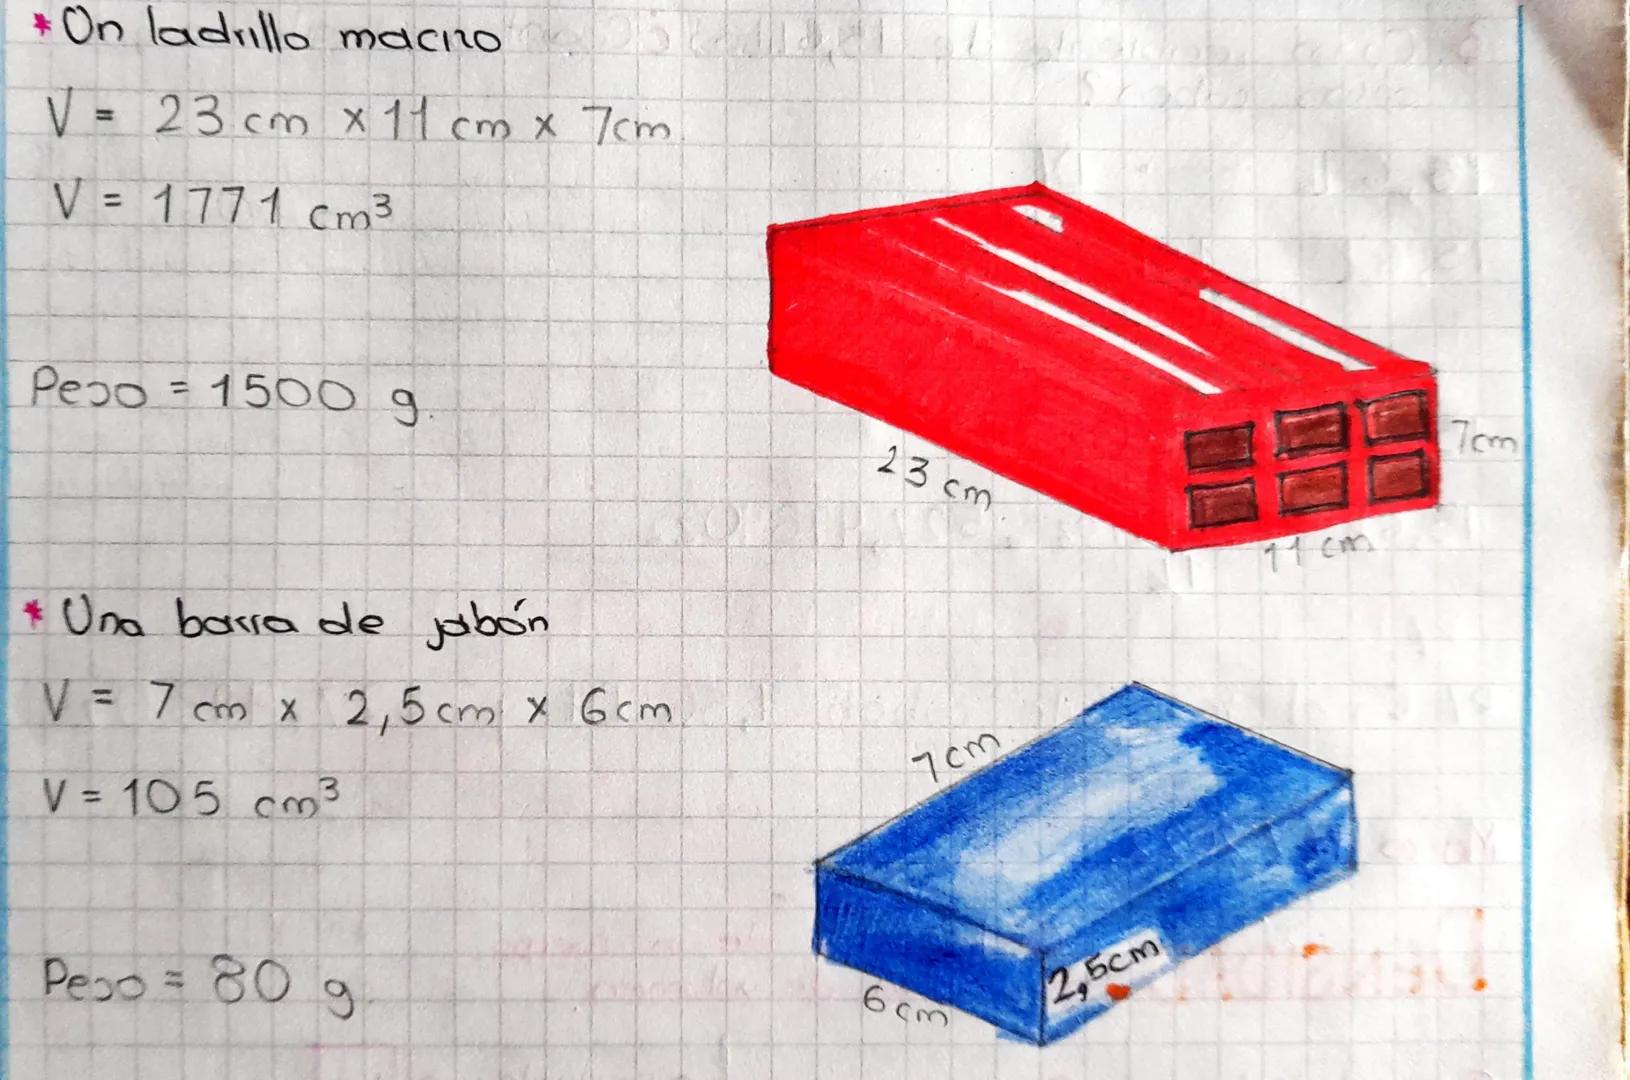 * Un ladrillo macizo
V = 23 cm x 11 cm x 7cm.
V = 1771 cm³
Peso = 1500 g.
7cm
23 cm
11 cm
* Una barra de jabón
V = 7 cm x 2,5cm x 6cm
V = 105 cm³
7cm
2,5cm
6cm
Peso = 80 g.